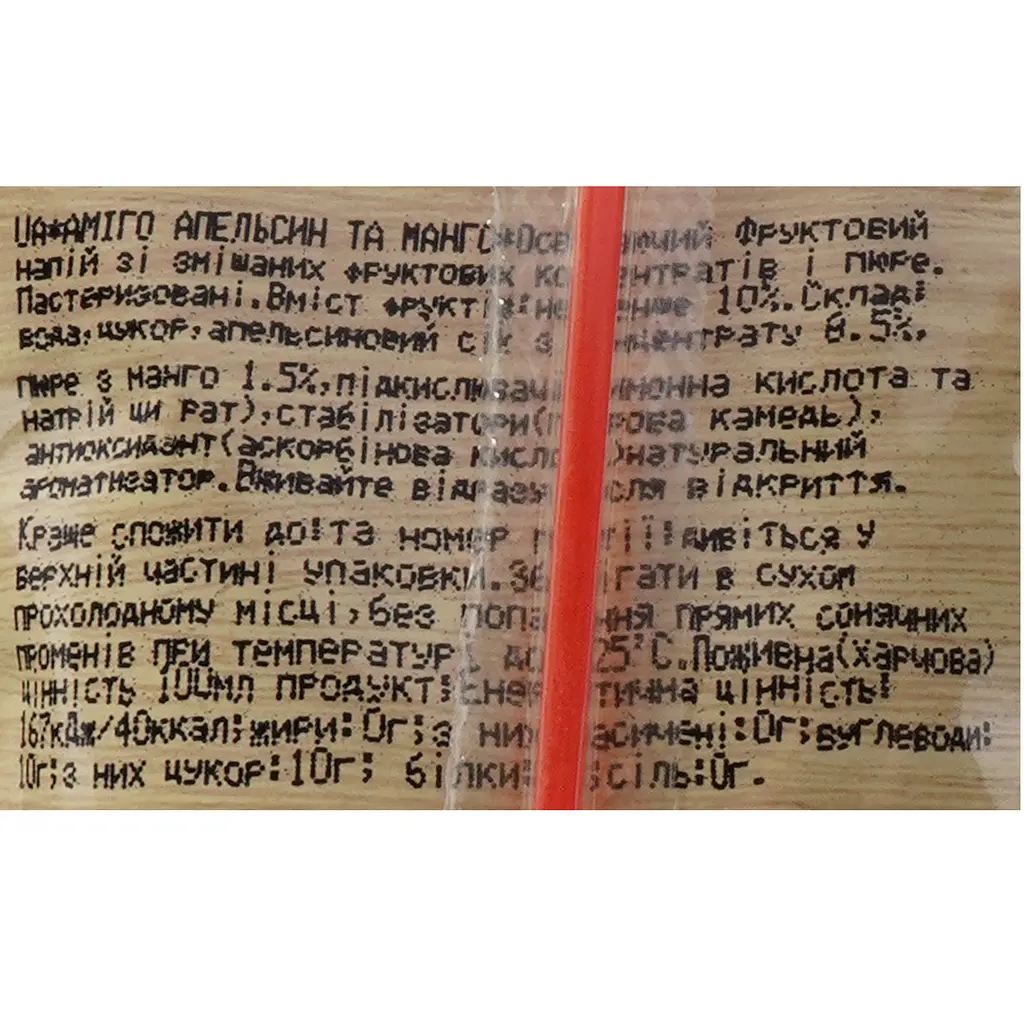 UA*АМІГО АПЕЛЬСИН ТА МАНГО* Фруктовий
напій зі змішаних фруктових і пюре.
Пастеризовані.Вміст 10%.Склад:
вода,цукор,апельсиновий з 8.5%,
пюре з манго 1.5%, кислота та
натрій ци рат),стабілізатори( камедь),
антиоксидант(аскорбінова натуральний
ароматизатор.Вживайте відкриття.
Краще спожити до:та номер дивіться у
верхній частині упаковки. в сухом
прохолодному місці,без прямих сонячних
променів при температурі до 25°С.Поживна(харчова)
цінність 100мл продукт: цінність:
167кДж/40ккал;жири:0г;з них :0г;вуглеводи:
10г;з них цукор:10г; білки: ;сіль:0г.